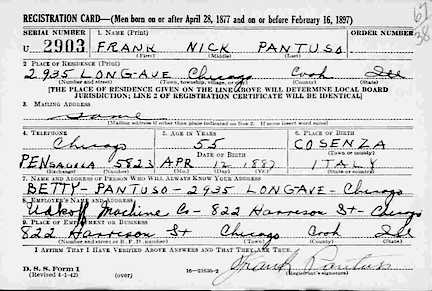 67
38
REGISTRATION CARD—(Men born on or after April 28, 1877 and on or before February 16, 1897)
SERIAL NUMBER 1. Name (Print) ORDER NUMBER
U 2903 FRANK NICK PANTUSO
(First) (Middle) (Last)
2. Place of Residence (Print)
2935 LONG-AVE Chicago Cook Ill
(Number and street) (Town, township, village, or city) (County) (State)
[THE PLACE OF RESIDENCE GIVEN ON THE LINE ABOVE WILL DETERMINE LOCAL BOARD
JURISDICTION; LINE 2 OF REGISTRATION CERTIFICATE WILL BE IDENTICAL]
3. Mailing Address
Same
[Mailing address if other than place indicated on line 2. If same insert word same]
4. Telephone 5. Age in Years 6. Place of Birth
Chicago 55 COSENZA
Date of Birth (Town or county)
PENSACOLA 5823 APR 12 1887 ITALY
(Exchange) (Number) (Mo.) (Day) (Yr.) (State or country)
7. Name and Address of Person Who Will Always Know Your Address
BETTY-PANTUSO-2935 LONGAVE-Chicago
8. Employer's Name and Address
Machine Co-822 Harrison St-Chicago
9. Place of Employment or Business
822 Harrison St Chicago Cook Ill
(Number and street or R. F. D. number) (Town) (County) (State)
I Affirm That I Have Verified Above Answers and That They Are True.
D. S. S. Form 1
(Revised 4-1-42) (over) 16—21630-2 Frank Pantuso
(Registrant's signature)